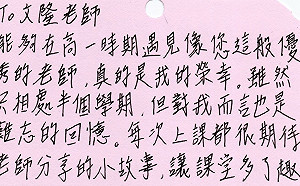 To 文隆老師
能夠在高一時期遇見像您這般優
秀的老師，真的是我的榮幸。雖然
只相處半個學期，但對我而言也是
難忘的回憶。每次上課都很期待
老師分享的小故事，讓課堂多了趣